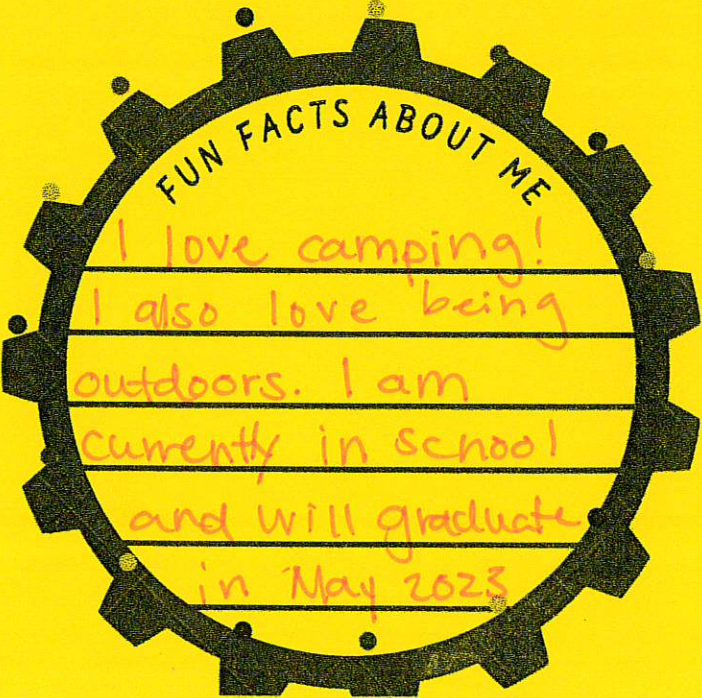 FUN FACTS ABOUT ME
I love camping!
I also love being
outdoors. I am
currently in school
and will graduate
in May 2023